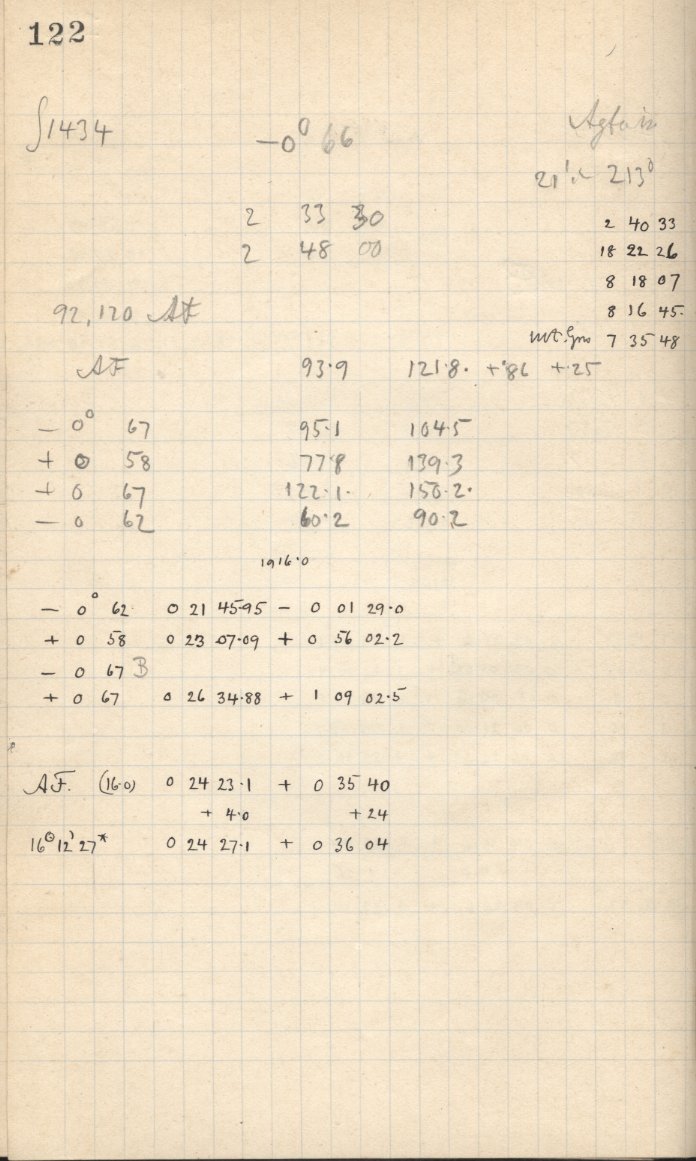 122
∫1434 −0° 66
21' 213°
2 33 30
2 48 00
2 40 33
18 22 26
8 18 07
8 16 45.
7 35 48
92, 120 AF
AF 93.9 121.8. +.86 +.25
− 0° 67 95.1 104.5
+ 0 58 77.8 139.3
+ 0 67 122.1. 150.2.
− 0 62 60.2 90.2
1916.0
− 0° 62 0 21 45.95 − 0 01 29.0
+ 0 58 0 23 07.09 + 0 56 02.2
− 0 67 B
+ 0 67 0 26 34.88 + 1 09 02.5
AF. (16.0) 0 24 23.1 + 0 35 40
+ 4.0 + 24
0 24 27.1 + 0 36 04